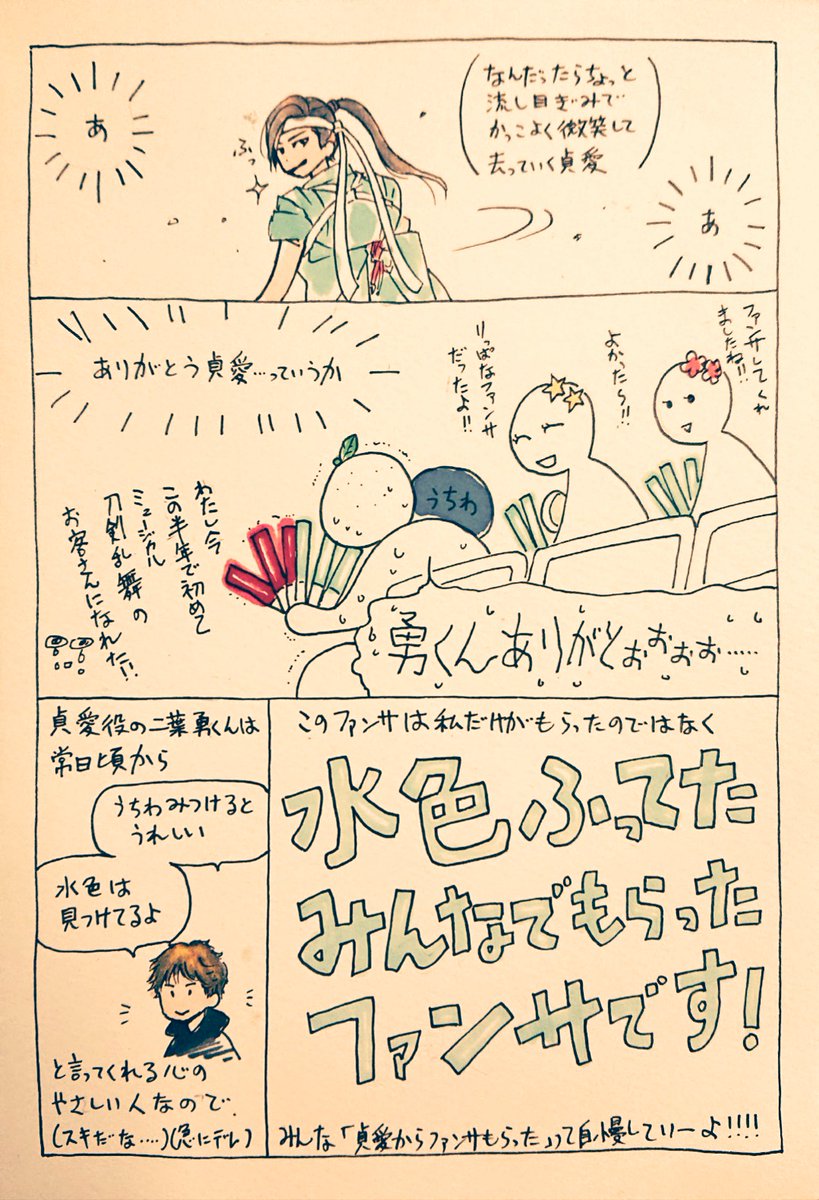 なんだったらちょっと
流し目ぎみで
かっこよく微笑して
去っていく貞愛
あ
ふっ
あ
ありがとう貞愛…っていうか
ファンサしてくれ
ましたね!!
よかったら!!
りっぱなファンサ
だったよ!!
うちわ
わたし今
この半年で初めて
ミュージカル
刀剣乱舞の
お客さんになれた!!
勇くんありがとぉぉぉぉ……
このファンサは私だけがもらったのではなく
水色ふってた
みんなでもらった
ファンサです!
みんな「貞愛からファンサもらった」って自慢していーよ!!!!
貞愛役の二葉勇くんは
常日頃から
うちわみつけると
うれしい
水色は
見つけてるよ
と言ってくれる心の
やさしい人なので
(スキだな….)(急にデレ)